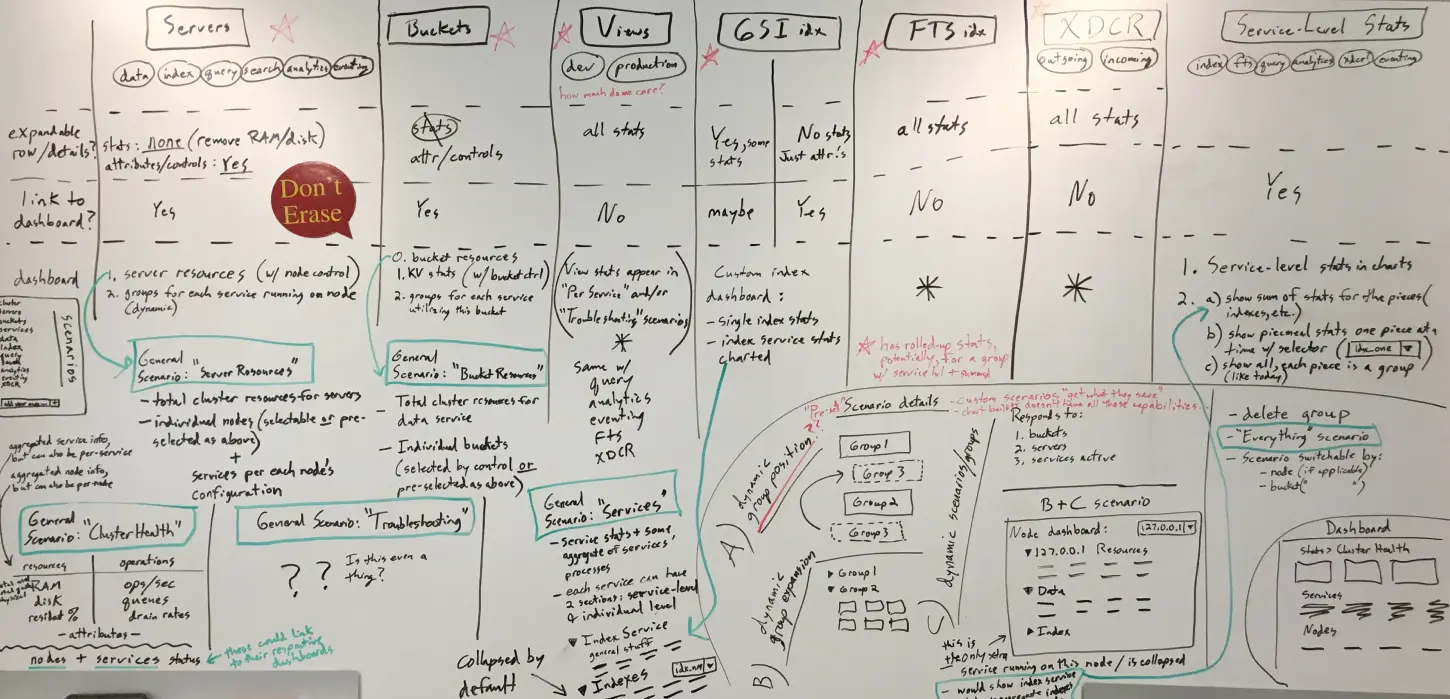 Servers
data index query search analytics eventing
Buckets
Views
dev production
how much do we care?
GSI idx
FTS idx
XDCR
outgoing incoming
Service-Level Stats
index fts query analytics xdcr! eventing
expandable
row/details?
stats: none (remove RAM/disk)
attributes/controls: Yes
stats
attr/controls
all stats
Yes, some
stats
No stats
Just attr's
all stats
all stats
link to
dashboard?
Yes
Don't
Erase
Yes
No
maybe
Yes
No
No
Yes
dashboard
1. server resources (w/ node control)
2. groups for each service running on node
(dynamic)
0. bucket resources
1. KV stats (w/ bucket ctrl)
2. groups for each service
utilizing this bucket
(View stats appear in
"Per Service" and/or
"Troubleshooting" scenarios)
*
same w/
query
analytics
eventing
FTS
XDCR
Custom index
dashboard:
- single index stats
- index service stats
charted
*
*
has rolled-up stats,
potentially, for a group
w/ service lvl + summed
1. Service-level stats in charts
2. a) show sum of stats for the pieces (
indexes, etc.)
b) show piecmeal stats one piece at a
time w/ selector (idx_one)
c) show all, each piece is a group
(like today)
cluster
servers
buckets
services
data
index
query
analytics
eventing
XDCR
scenarios
General
Scenario: "Server Resources"
- total cluster resources for servers
- individual nodes (selectable or pre-
selected as above)
+
services per each node's
configuration
General
Scenario: "Bucket Resources"
- Total cluster resources for
data service
- Individual buckets
(selected by control or
pre-selected as above)
aggregated service info,
but can also be per-service
aggregated node info,
but can also be per-node
General
Scenario: "Cluster Health"
resources
operations
RAM
disk
resident %
ops/sec
queues
drain rates
- attributes -
nodes + services status
these could link
to their respective
dashboards
General Scenario: "Troubleshooting"
? ?
Is this even a
thing?
General
Scenario: "Services"
- service stats + some
aggregate of services'
processes
- each service can have
2 sections: service-level
& individual level
▼ Index Service
general stuff
▼ Indexes
idx.nm
Collapsed by
default
"Pre-set"
??
Scenario details
- Custom scenarios "get what they save"
- chart builder doesn't have all those capabilities.
A) dynamic
group position
Group 1
Group 3
Group 2
Group 3
B) dynamic
group expansion
▶ Group 1
▼ Group 2
C) dynamic scenarios/groups
Responds to:
1. buckets
2. servers
3. services active
B + C scenario
Node dashboard: 127.0.0.1
▼ 127.0.0.1 Resources
▼ Data
▶ Index
this is
the only xtra
service running on this node / is collapsed
- would show index service
- delete group
- "Everything" scenario
- Scenario switchable by:
- node (if applicable)
- bucket (" ")
Dashboard
Stats > Cluster Health
Services
Nodes